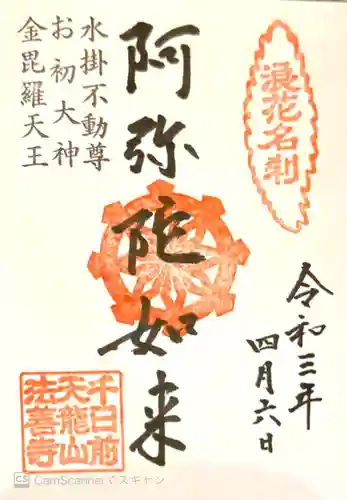 浪花名刹
令和三年
四月六日
阿弥陀如来
水掛不動尊
お初大神
金毘羅天王
千日前
天龍山
法善寺
CS CamScanner でスキャン